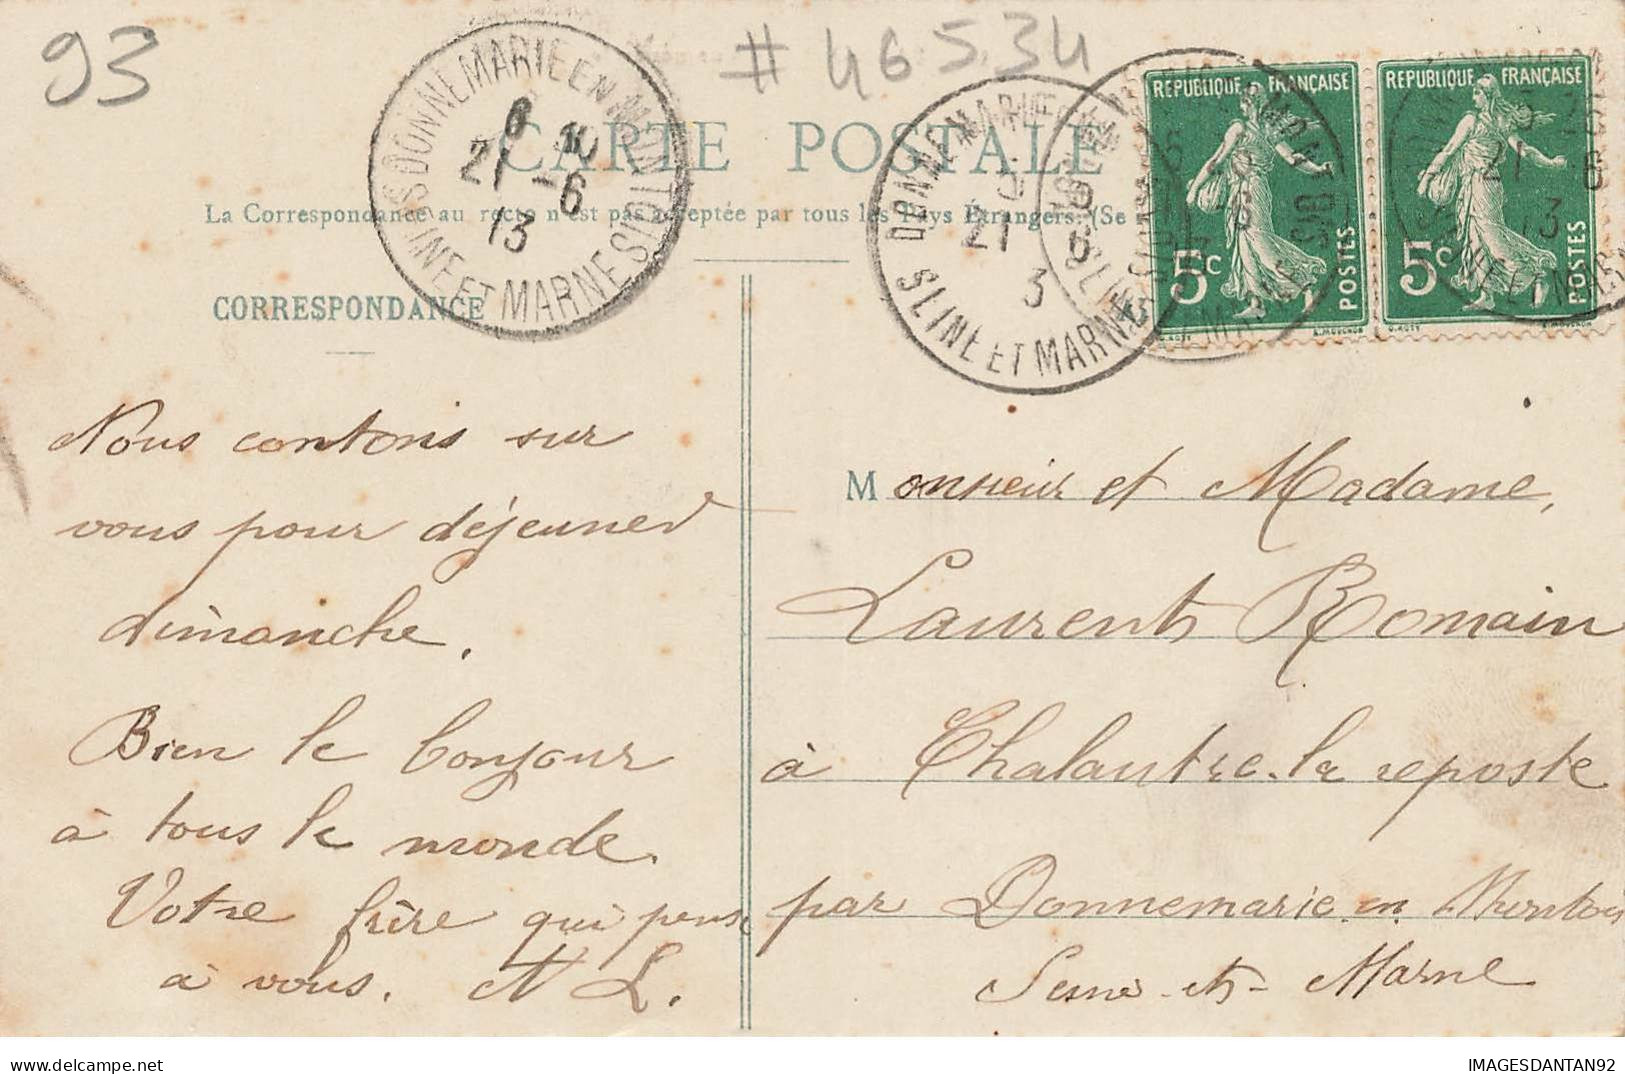 93
# 46534
CARTE POSTALE
La Correspondance au recto n'est pas acceptée par tous les Pays Étrangers. (Se
CORRESPONDANCE
DONNEMARIE EN MONTOIS
21 - 6
13
SEINE ET MARNE
DONNEMARIE EN
21 6
3
SEINE ET MARNE
REPUBLIQUE FRANÇAISE
5c
POSTES
REPUBLIQUE FRANÇAISE
5c
POSTES
21 6
13
Nous contons sur
vous pour déjeuner
dimanche.
Bien le bonjour
à tous le monde.
Votre frère qui pense
à vous. A L.
Monsieur et Madame,
Laurents Romain
à Chalautre-la reposte
par Donnemarie en Montois
Seine-et-Marne
IMAGESDANTAN92